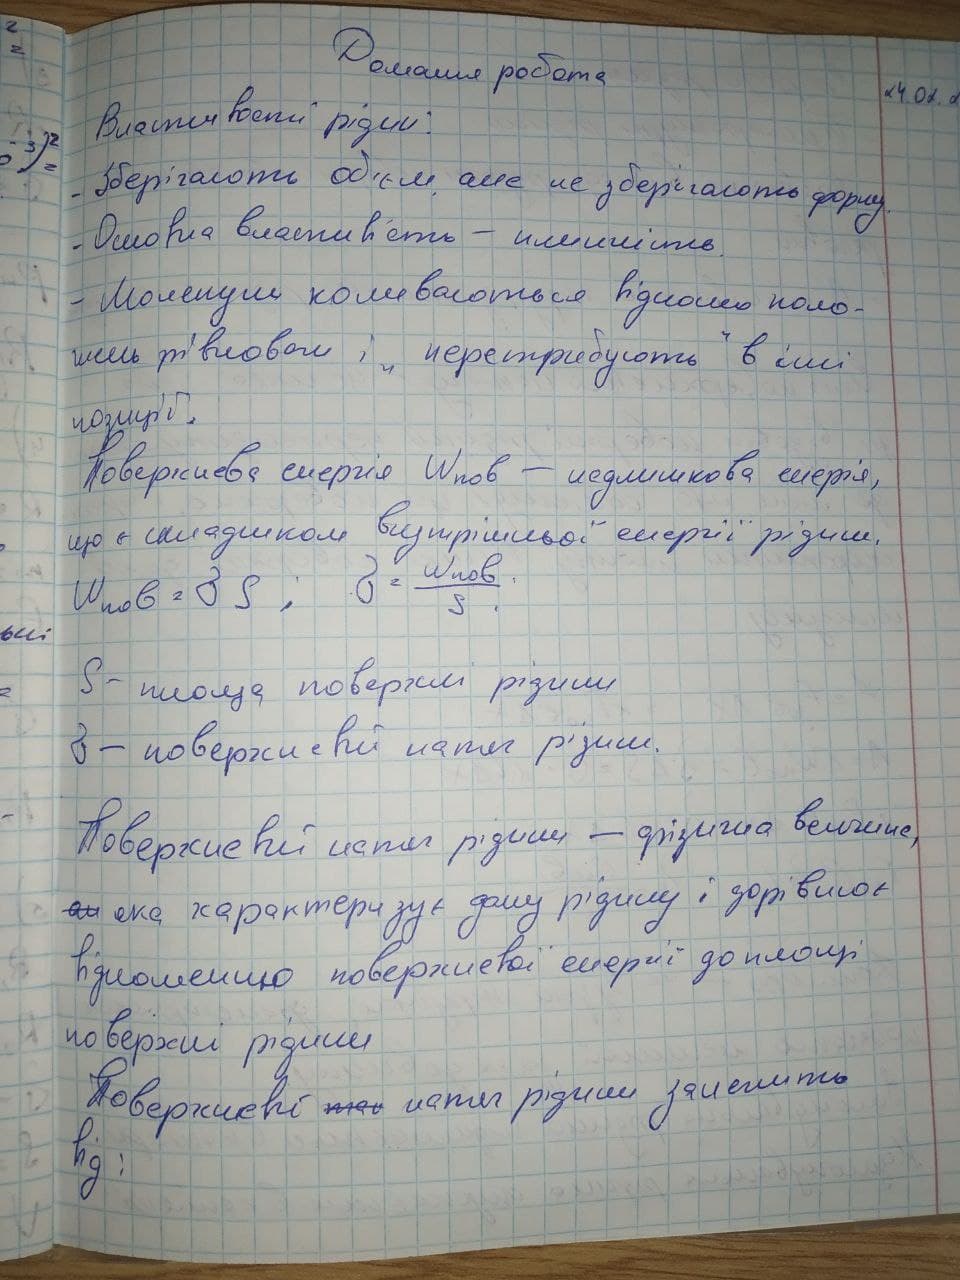 Домашня робота
24.02.2
Властивості рідин:
- Зберігають об'єм, але не зберігають форму.
- Основна властивість – плинність.
- Молекули коливаються відносно поло-
жень рівноваги і „перестрибують" в інші
позиції.
Поверхнева енергія Wпов – надлишкова енергія,
що є складником внутрішньої енергії рідини.
Wпов = σ S ; σ = Wпов / S .
S – площа поверхні рідини
σ – поверхневий натяг рідини.
Поверхневий натяг рідини – фізична величина,
яка характеризує дану рідину і дорівнює
відношенню поверхневої енергії до площі
поверхні рідини
Поверхневий натяг рідини залежить
від: